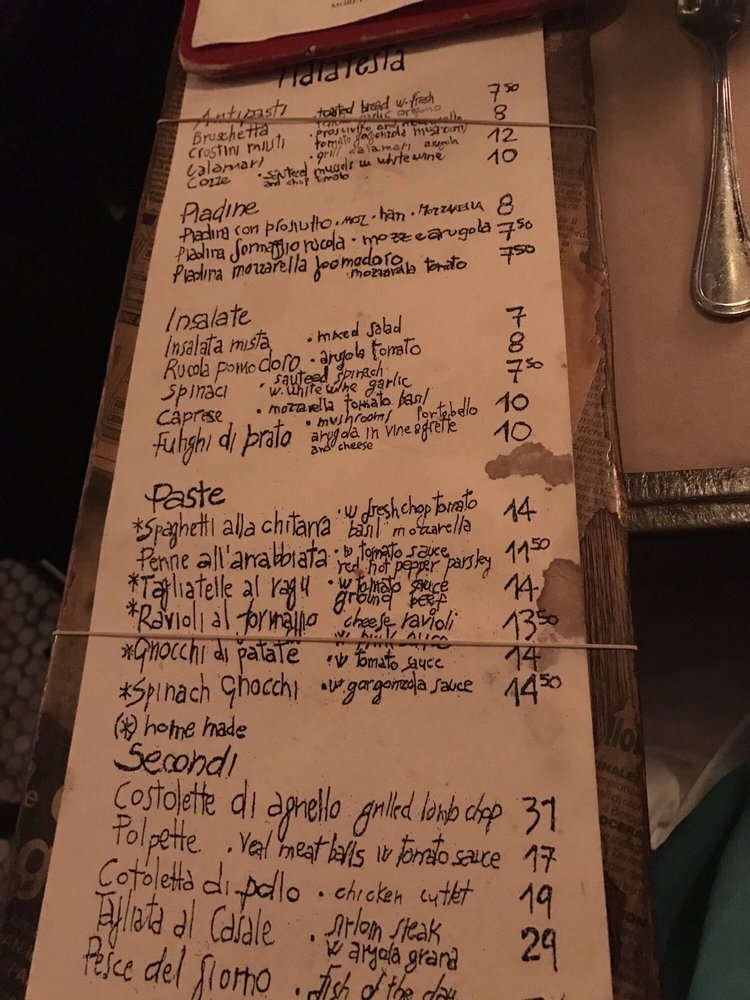 Malatesta
Antipasti
Bruschetta . toasted bread w. fresh 7 50
Crostini misti . prosciutto and mozzarella 8
tomato gorgonzola mushrooms
Calamari . grill calamari arugola 12
Cozze . sauteed mussels w white wine 10
and chop tomato
Piadine
Piadina con prosciutto . moz . ham . mozzarella 8
Piadina formaggio rucola . mozz e arugola 7 50
Piadina mozzarella pomodoro 7 50
mozzarella tomato
Insalate
Insalata mista . mixed salad 7
Rucola pomodoro . arugola tomato 8
Spinaci . sauteed spinach 7 50
w. white wine garlic
Caprese . mozzarella tomato basil 10
Funghi di prato . mushrooms portobello 10
arugola in vineagrette
and cheese
Paste
*Spaghetti alla chitarra . w fresh chop tomato 14
basil mozzarella
Penne all'arrabbiata . w tomato sauce 11 50
red hot pepper parsley
*Tagliatelle al ragu . w tomato sauce 14
ground beef
*Ravioli al formaggio cheese ravioli 13 50
w pink sauce
*Gnocchi di patate . w tomato sauce 14
*Spinach Gnocchi . w gorgonzola sauce 14 50
(*) home made
Secondi
Costolette di agnello grilled lamb chop 31
Polpette . veal meat balls w tomato sauce 17
Cotoletta di pollo . chicken cutlet 19
Tagliata al Casale . sirloin steak 29
w arugola grana
Pesce del giorno . fish of the day